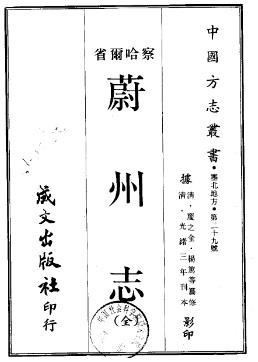 中國方志叢書・塞北地方・第二十九號
據
清・慶之金・楊篤等纂修
清・光緒三年刊本
影印
察哈爾省
蔚州志
(全)
成文出版社印行